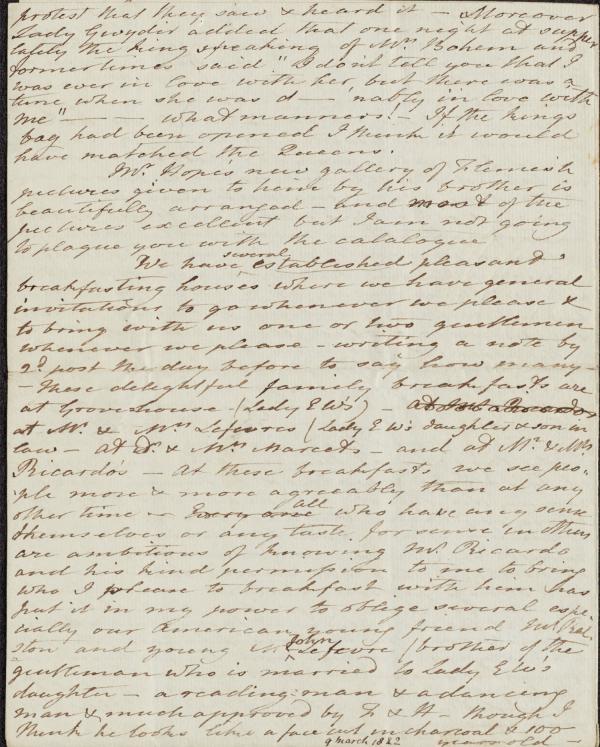 protest that they saw & heard it – Moreover
Lady Gwydir added that one night at supper
lately the King speaking of Mrs Bohem and
former times said "I don't tell you that I
was ever in love with her but there was a
time when she was d––nably in love with
me" – – – what manners! – If the Kings
bag had been opened I think it would
have matched the Queens.
Mr. Hopes new gallery of Flemish
pictures given to him by his brother is
beautifully arranged – and most of the
pictures excellent but I am not going
to plague you with the catalogue
We have several established pleasant
breakfasting houses where we have general
invitations to go whenever we please &
to bring with us one or two gentlemen
whenever we please – writing a note by
2d. post the day before to say how many –
– These delightful family breakfasts are
at Grove house (Lady E W's) – at Mr. Ricardos
at Mr. & Mrs Lefevres (Lady E W's daughter & son in
law – at Dr. & Mrs Marcets – and at Mr. & Mrs
Ricardo's – At these breakfasts we see peo-
ple more & more agreeably than at any
other time – Every one all who have any sense
themselves or any taste for sense in others
are ambitious of knowing Mr. Ricardo
and his kind permission to me to bring
who I please to breakfast with him has
put it in my power to oblige several espe
cially our American young friend Mr Ral
ston and young Mr John Lefevre (brother of the
gentleman who is married to Lady E W's
daughter – a reading man & a dancing
man & much approved by F & H – though I
think he looks like a face cut in charcoal & 500
years old
9 March 1822